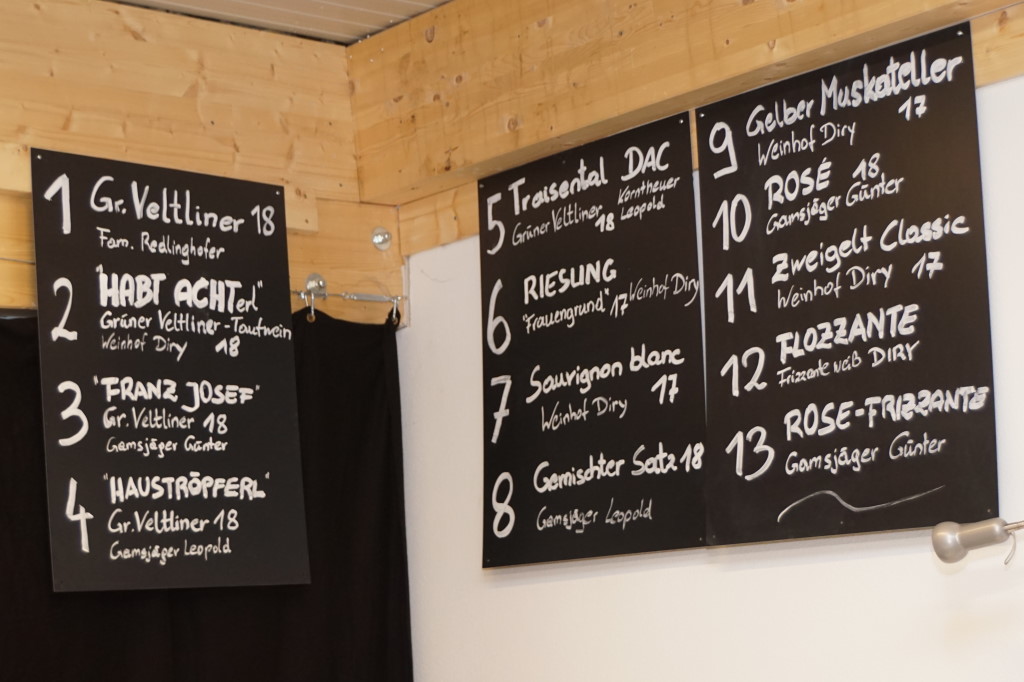 1 Gr. Veltliner 18
Fam. Redlinghofer
2 "HABT ACHTerl"
Grüner Veltliner - Taufwein
Weinhof Diry 18
3 "FRANZ JOSEF"
Gr. Veltliner 18
Gamsjäger Günter
4 "HAUSTRÖPFERL"
Gr. Veltliner 18
Gamsjäger Leopold
5 Traisental DAC
Grüner Veltliner 18 Körntheuer Leopold
6 RIESLING
"Frauengrund" 17 Weinhof Diry
7 Sauvignon blanc
Weinhof Diry 17
8 Gemischter Satz 18
Gamsjäger Leopold
9 Gelber Muskateller
Weinhof Diry 17
10 ROSÉ 18
Gamsjäger Günter
11 Zweigelt Classic
Weinhof Diry 17
12 FLOZZANTE
Frizzante weiß DIRY
13 ROSE-FRIZZANTE
Gamsjäger Günter